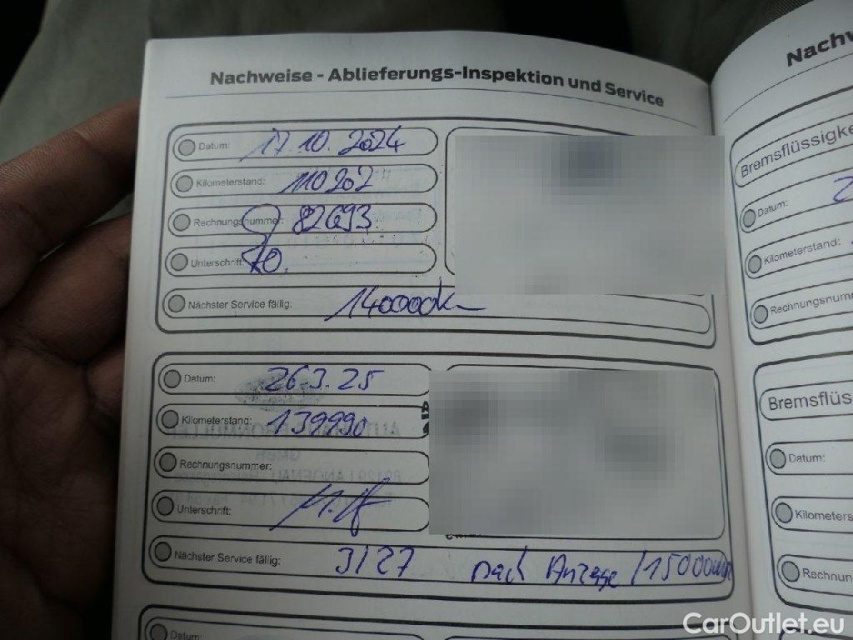 Nachweise - Ablieferungs-Inspektion und Service
Datum: 17.10.2024
Kilometerstand: 110202
Rechnungsnummer: 82693
Unterschrift:
Nächster Service fällig: 140000k
Datum: 263.25
Kilometerstand: 139990
Rechnungsnummer:
Unterschrift:
Nächster Service fällig: 3/27 nach Anzage /15000
Datum:
Nachw
Bremsflüssigke
Datum: 2
Kilometerstand:
Rechnungsnum
Bremsflüs
Datum:
Kilometers
Rechnun
CarOutlet.eu